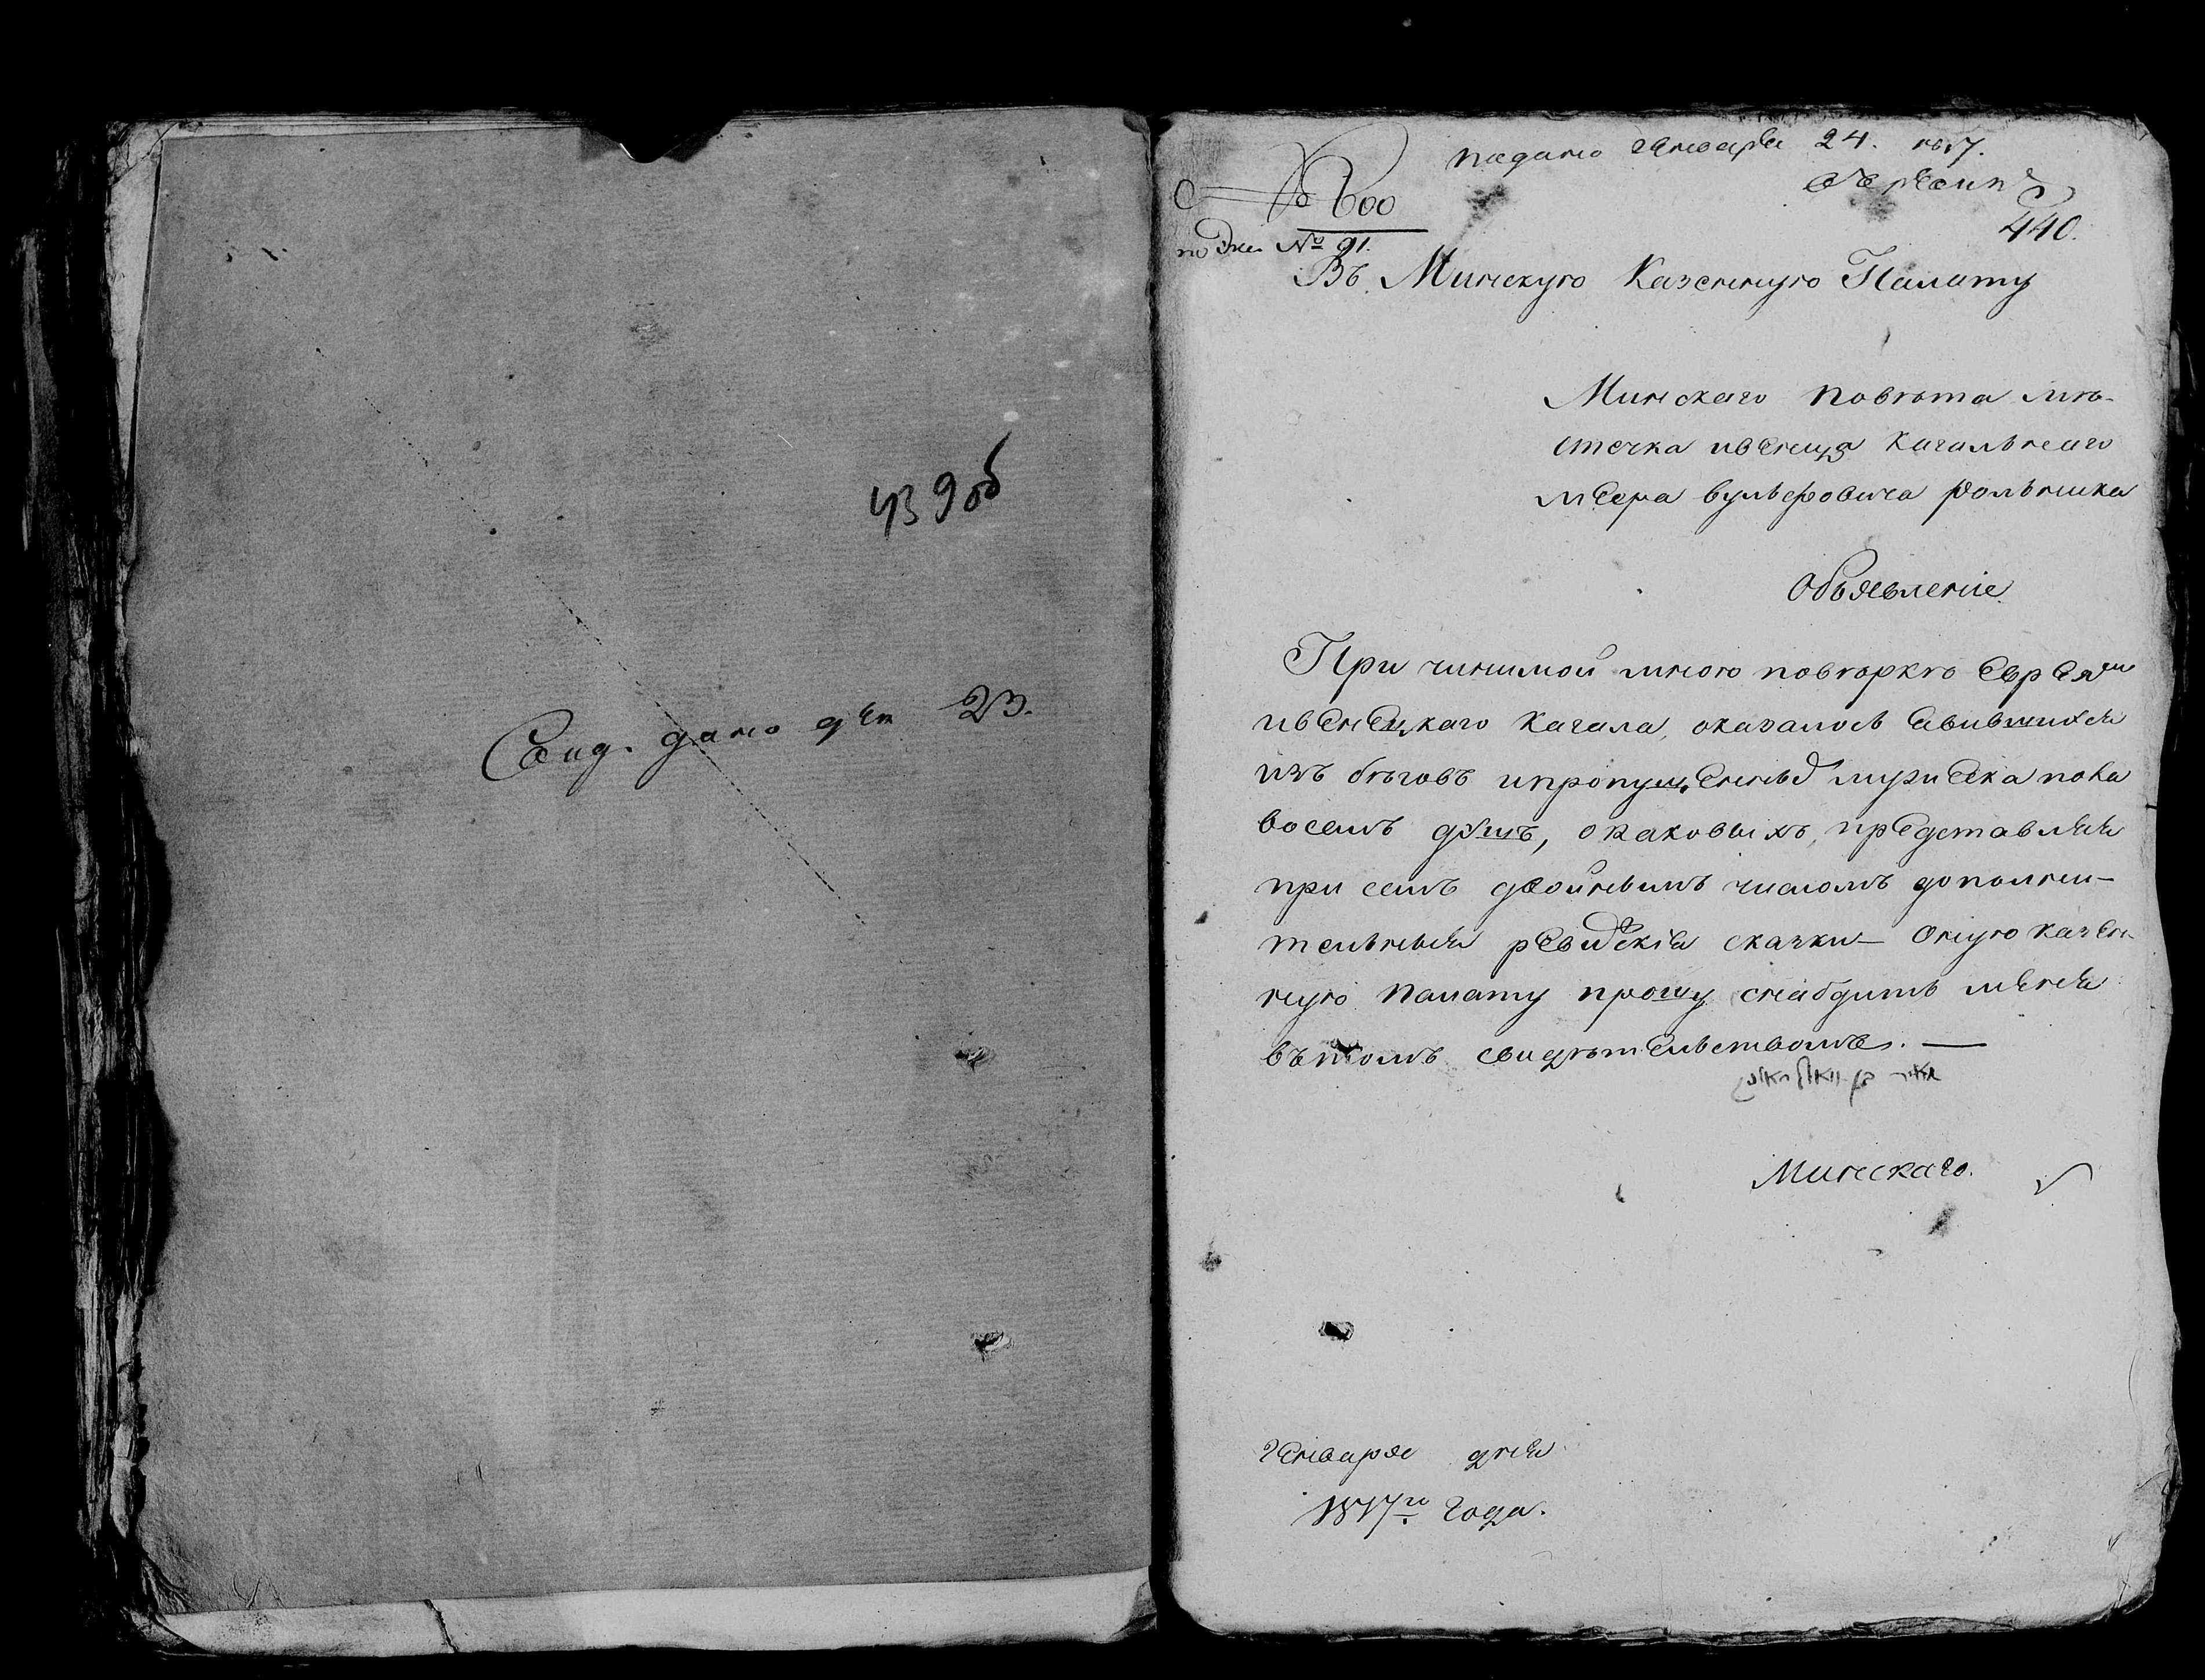 439об
Свид. дано ген 23.
подано генваря 24. 1817.
№ 600
440.
по эк. № 91.
Въ Минскую Казенную Палату
Минскаго повѣта мѣ-
стечка ивенца Кагальнаго
меера вульфовича рольника
Объявленіе
При чинимой мною повѣркѣ Евреямъ
ивенецкаго Кагала, оказалось явившихся
изъ бѣговъ ипропущенныхъ мужеска пола
восемь душъ, окаковыхъ, представляя
при семъ двойнымъ числомъ дополни-
тельныя ревизскія сказки — Оную казен
ную палату прошу снабдить меня
въ томъ свидѣтельствомъ. —
מאיר בן
Минскаго.
Генваря дня
1817го года.